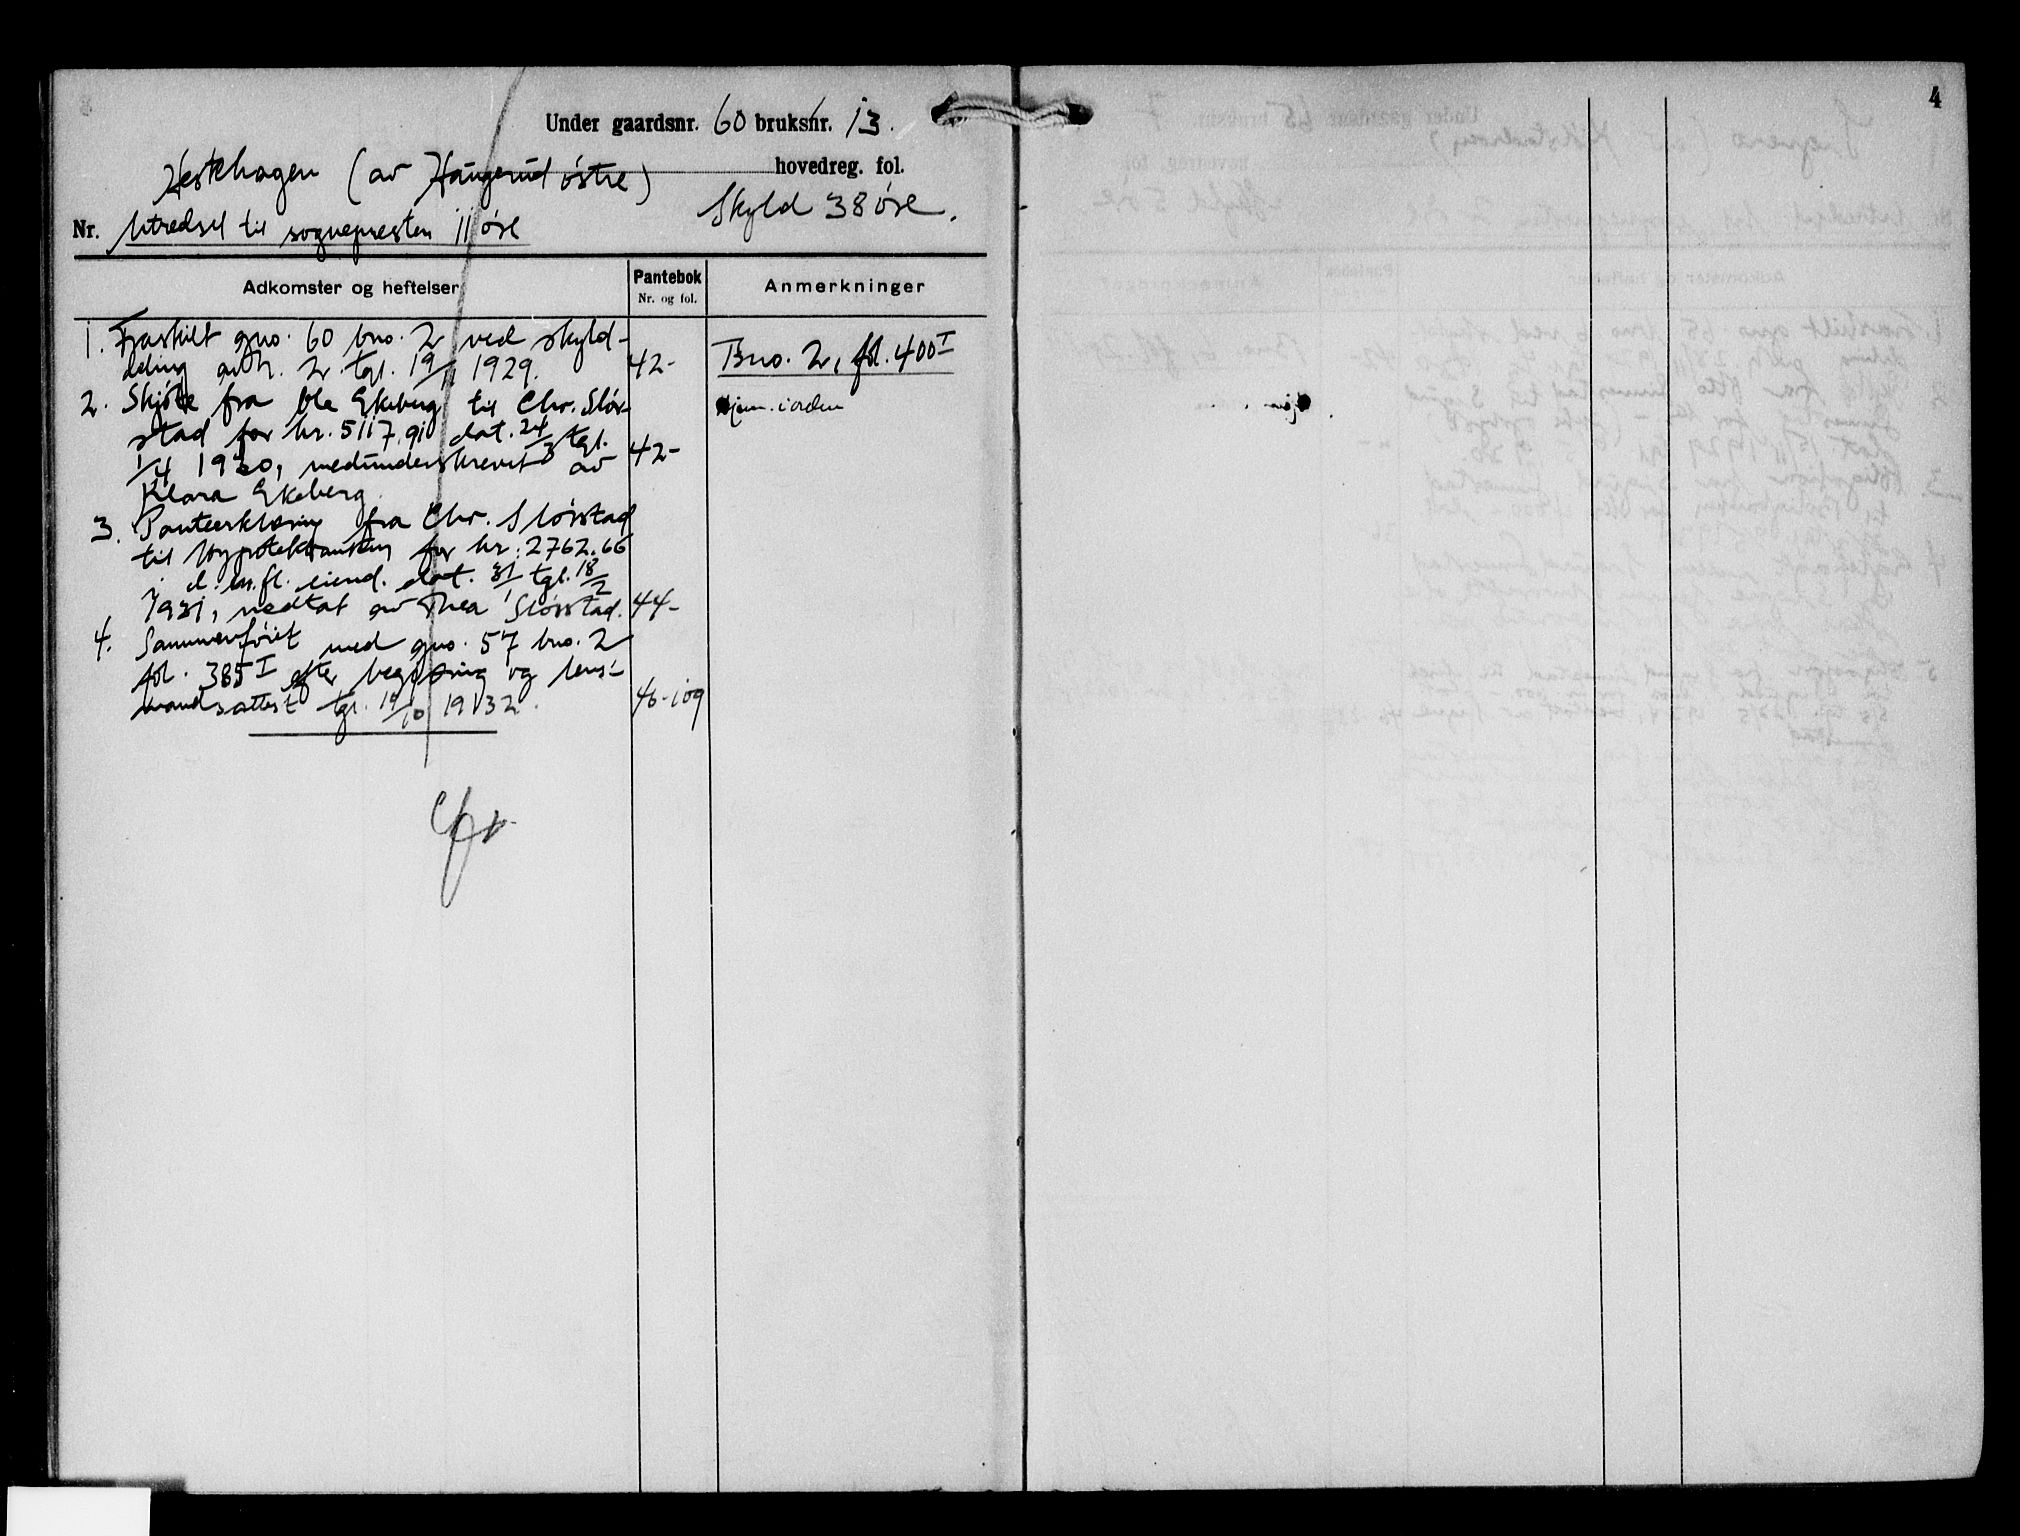 Under gaardsnr. 60 bruksnr. 13.
Hestehagen (av Haugerud østre) hovedreg. fol.
Skyld 38 øre.
Nr. Utredsel til sognepresten 11 øre
Adkomster og heftelser
Pantebok
Nr. og fol.
Anmerkninger
1. Fraskilt gno. 60 bno. 2 ved skyld-
deling avh. tgl. 1929. 42-
Bno. 2, fol. 400 I
2. Skjøte fra Ole Ekeberg til Chr. Slør-
stad for kr. 5117,91 dat. 24/3 tgl.
1/4 1930, medunderskrevet av 42-
Klara Ekeberg.
Hjem. i orden
3. Panteerklæring fra Chr. Slørstad
til Hypotekbanken for kr. 2762.66
i d. m.fl. eiend. dat. 31/1 tgl. 18/2
1931, vedtat av Thea Slørstad. 44-
4. Sammenføiet med gno. 57 bno. 2
fol. 385 I efter begjæring og lens-
mandsattest tgl. 19/10 1932. 46-109
4